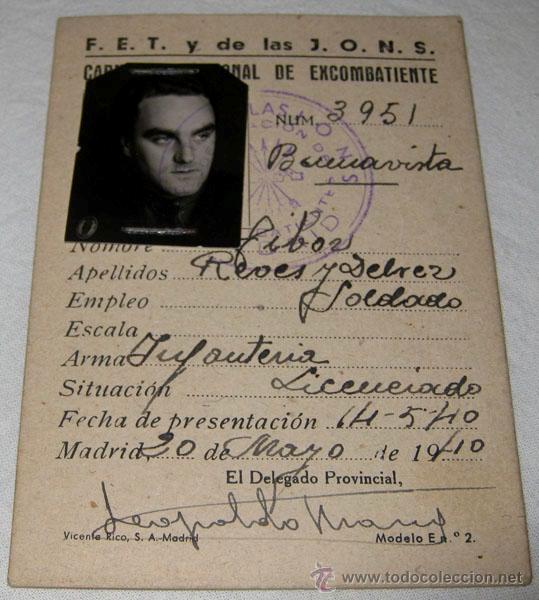 F. E. T. y de las J. O. N. S.
CAR ONAL DE EXCOMBATIENTE
NÚM. 3951
Buenavista
Nombre Tibor
Apellidos Reves y Delvez
Empleo Soldado
Escala
Arma Infanteria
Situación Licenciado
Fecha de presentación 14-5-40
Madrid, 20 de Mayo de 1940
El Delegado Provincial,
Leopoldo
Vicente Rico, S. A.-Madrid Modelo E n.º 2.
todocoleccion
www.todocoleccion.net